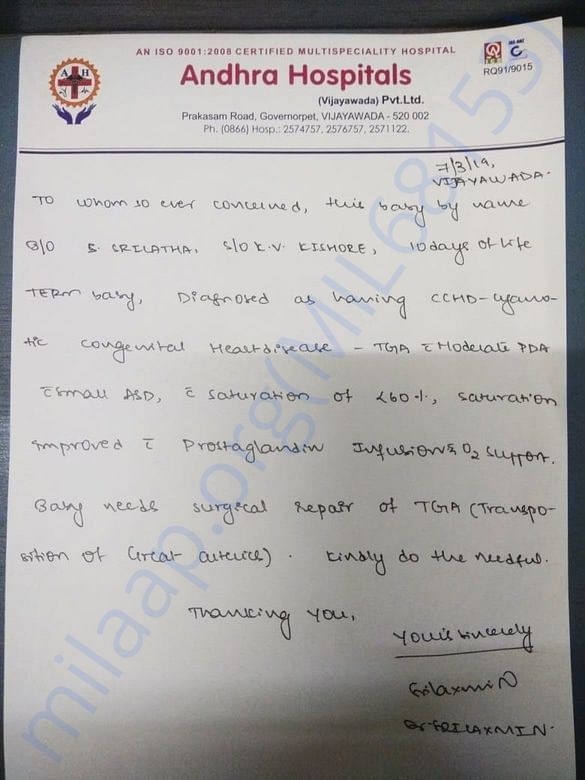 AN ISO 9001:2008 CERTIFIED MULTISPECIALITY HOSPITAL
Andhra Hospitals
(Vijayawada) Pvt.Ltd.
Prakasam Road, Governorpet, VIJAYAWADA - 520 002
Ph. (0866) Hosp.: 2574757, 2576757, 2571122.
A H
RQ91/9015
7/3/19,
VIJAYAWADA.
TO whom so ever concerned, this baby by name
B/O S. SRILATHA, S/O K.V. KISHORE, 10 days of life
TERM baby, Diagnosed as having CCHD-cyano-
tic congenital Heart disease - TGA c̄ Moderate PDA
c̄ small ASD, c̄ saturation of <60%, saturation
improved c̄ Prostaglandin Infusion & O2 support.
Baby needs surgical repair of TGA (Transpo-
sition of Great arteries). Kindly do the needful.
Thanking you,
Yours sincerely
Srilaxmi N
Dr SRILAXMI N.
milaap.org(MIL68155)